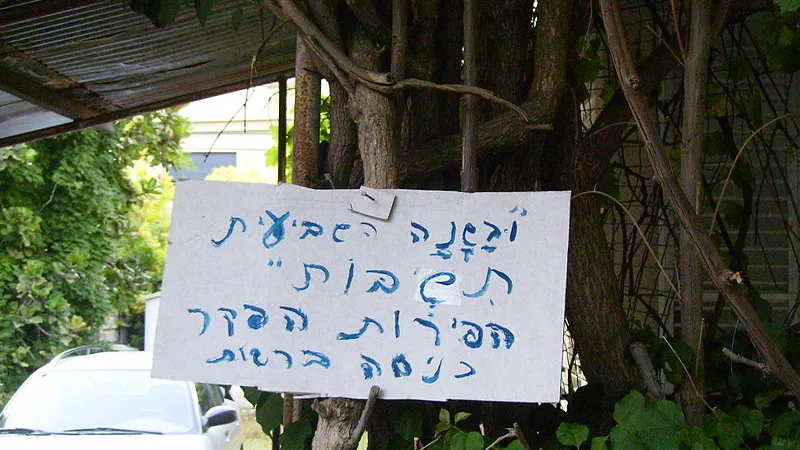 "וּבַשָנָה השביעית
תִשָבוֹת"
הפירות הפקר
כניסה ברשות